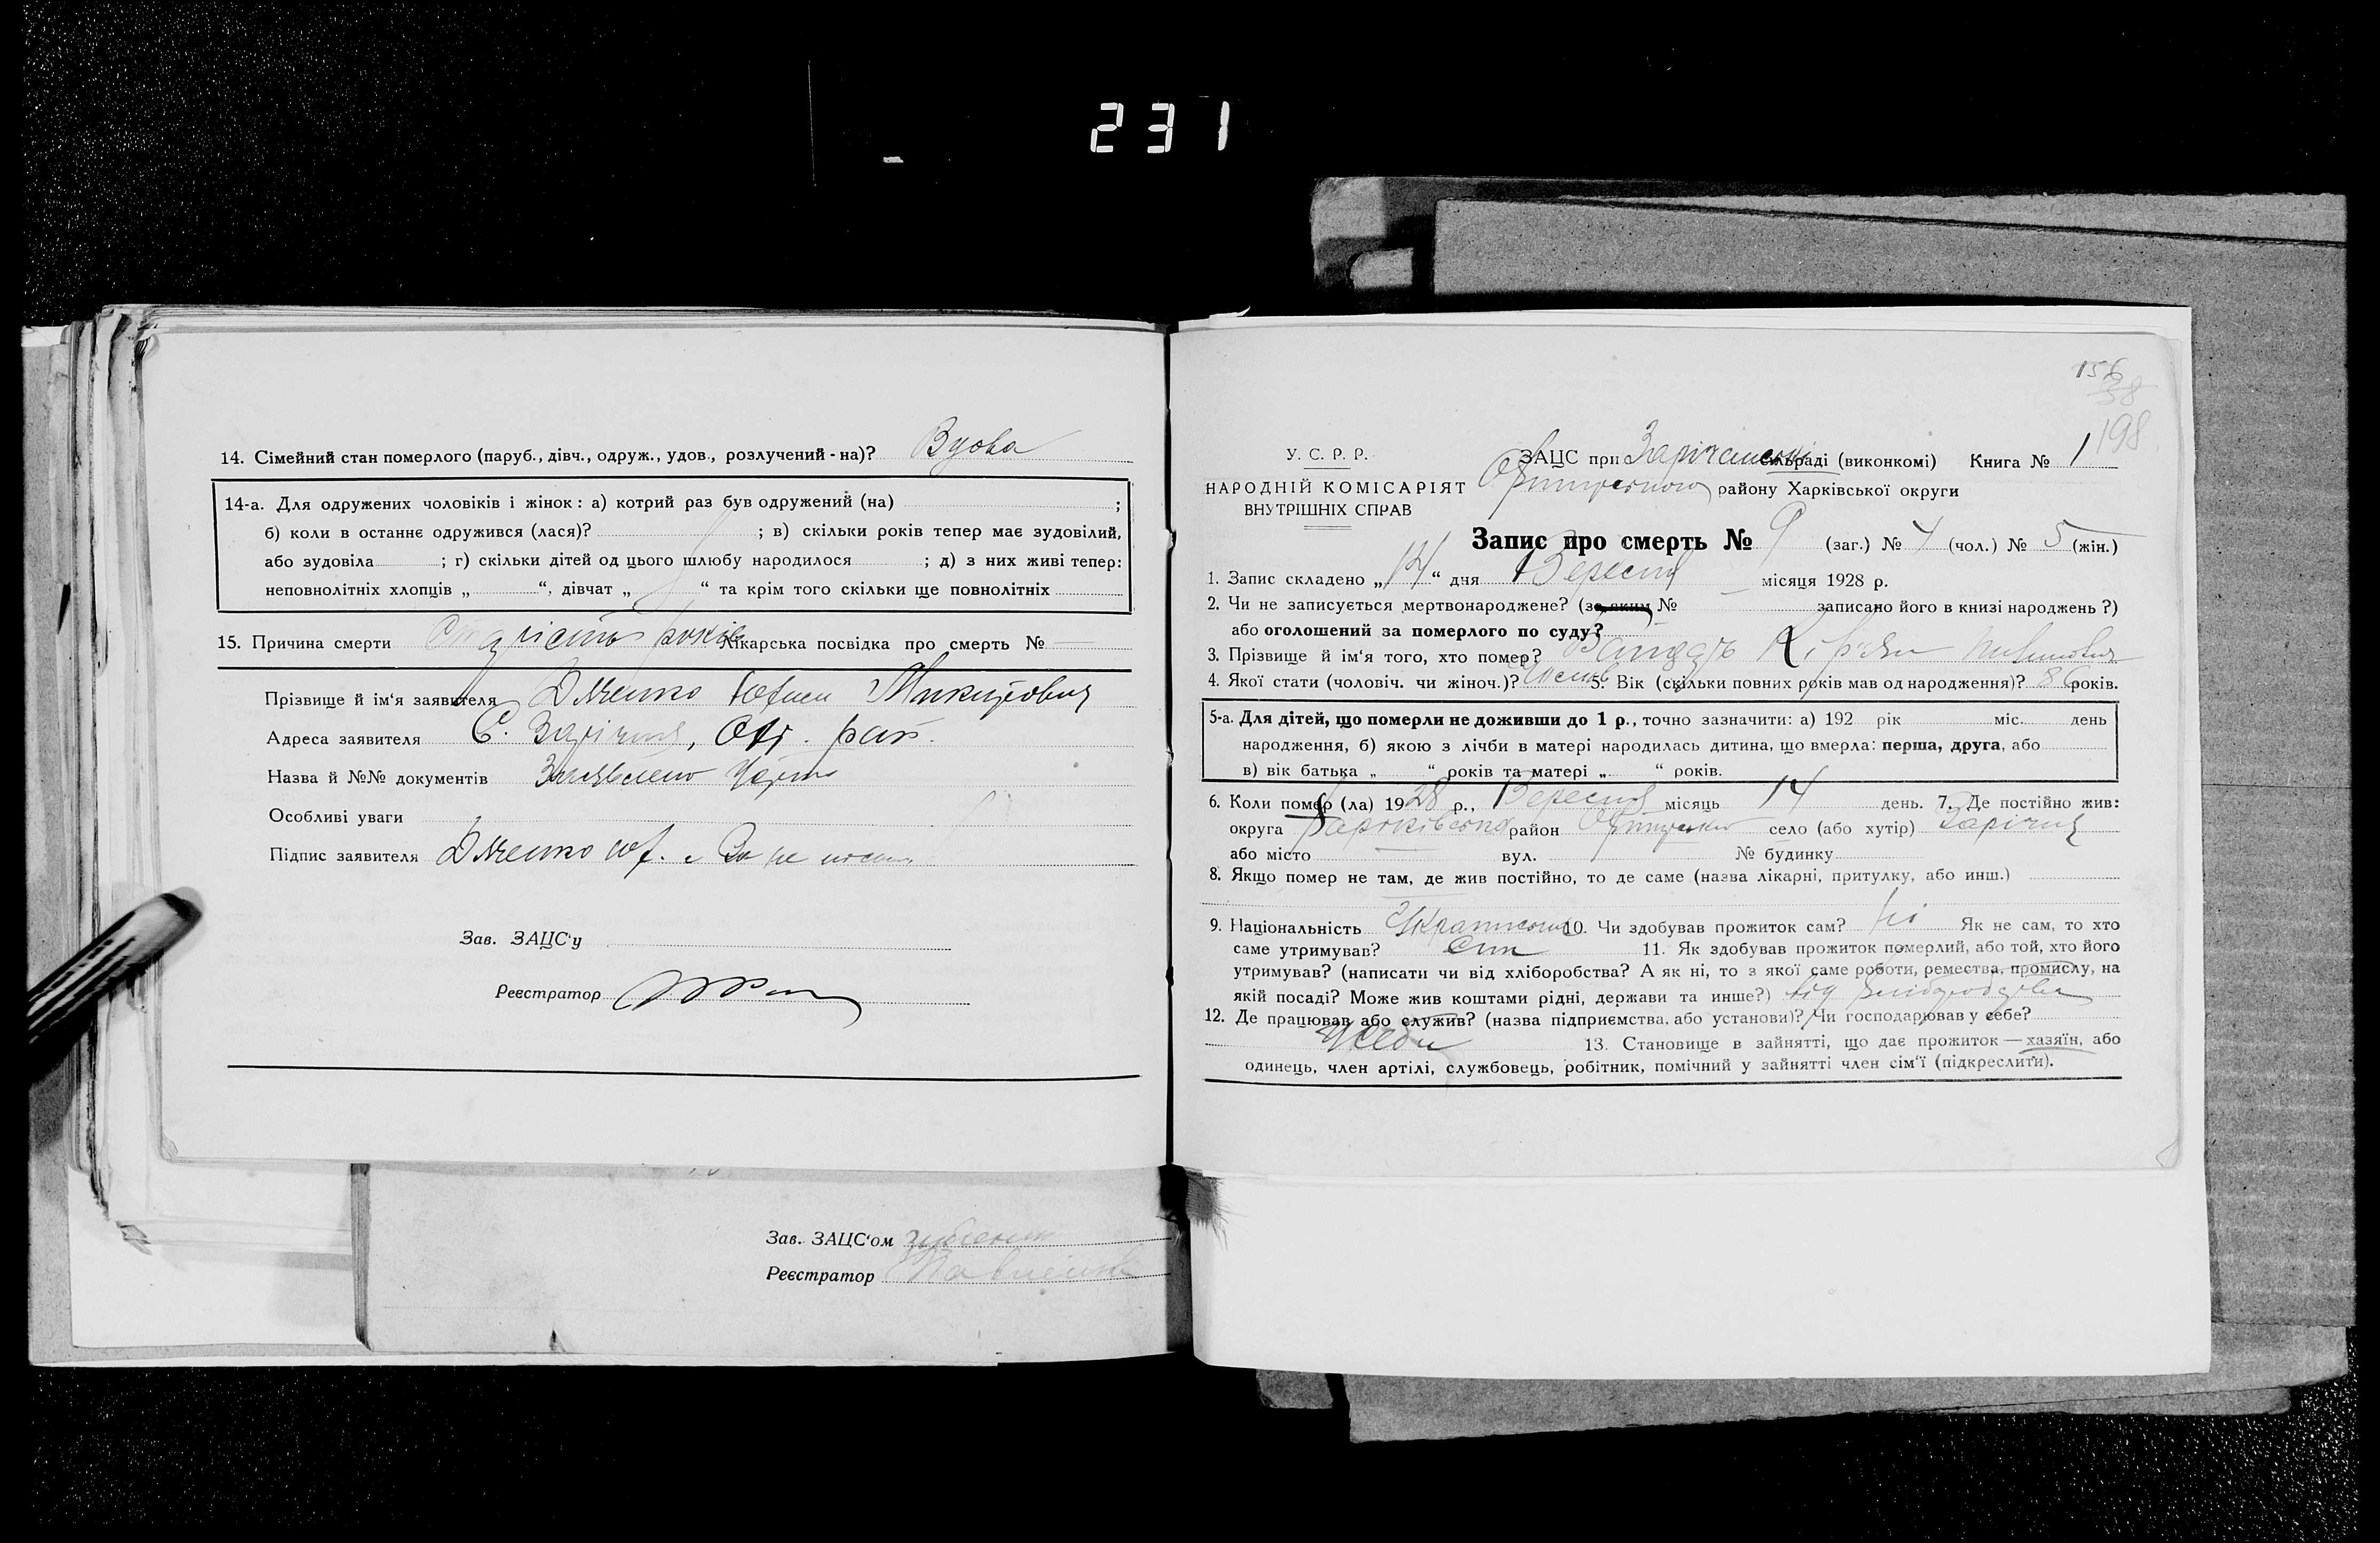 231
14. Сімейний стан померлого (паруб., дівч., одруж., удов., розлучений - на)? Вдова
14-а. Для одружених чоловіків і жінок: а) котрий раз був одружений (на) ;
б) коли в останнє одружився (лася)? ; в) скільки років тепер має зудовілий,
або зудовіла ; г) скільки дітей од цього шлюбу народилося ; д) з них живі тепер:
неповнолітніх хлопців „ “, дівчат „ “ та крім того скільки ще повнолітніх
15. Причина смерти Старість років Лікарська посвідка про смерть № —
Прізвище й ім'я заявителя Микитович
Адреса заявителя С. Зарічня, Охт. рай.
Назва й №№ документів Заявлено
Особливі уваги
Підпис заявителя
Зав. ЗАЦС'у
Реєстратор
Зав. ЗАЦС'ом
Реєстратор
156
38
198
У. С. Р. Р.
НАРОДНІЙ КОМІСАРІЯТ
ВНУТРІШНІХ СПРАВ
ЗАЦС при сільраді (виконкомі) Книга № 1
району Харківської округи
Запис про смерть № 9 (заг.) № 4 (чол.) № 5 (жін.)
1. Запис складено „14“ дня Вересня місяця 1928 р.
2. Чи не записується мертвонароджене? (за яким № записано його в книзі народжень ?)
або оголошений за померлого по суду?
3. Прізвище й ім'я того, хто помер?
4. Якої стати (чоловіч. чи жіноч.)? 5. Вік (скільки повних років мав од народження)? 86 років.
5-а. Для дітей, що померли не доживши до 1 р., точно зазначити: а) 192 рік міс. день
народження, б) якою з лічби в матері народилась дитина, що вмерла: перша, друга, або
в) вік батька „ “ років та матері „ “ років.
6. Коли помер (ла) 1928 р., Вересня місяць 14 день. 7. Де постійно жив:
округа Харківська район село (або хутір) Зарічня
або місто вул. № будинку
8. Якщо помер не там, де жив постійно, то де саме (назва лікарні, притулку, або инш.)
9. Національність 10. Чи здобував прожиток сам? Ні Як не сам, то хто
саме утримував? Син 11. Як здобував прожиток померлий, або той, хто його
утримував? (написати чи від хліборобства? А як ні, то з якої саме роботи, ремества, промислу, на
якій посаді? Може жив коштами рідні, держави та инше?) від хліборобства
12. Де працював або служив? (назва підприємства, або установи)? Чи господарював у себе?
У себе 13. Становище в зайнятті, що дає прожиток — хазяїн, або
одинець, член артілі, службовець, робітник, помічний у зайнятті член сім'ї (підкреслити).